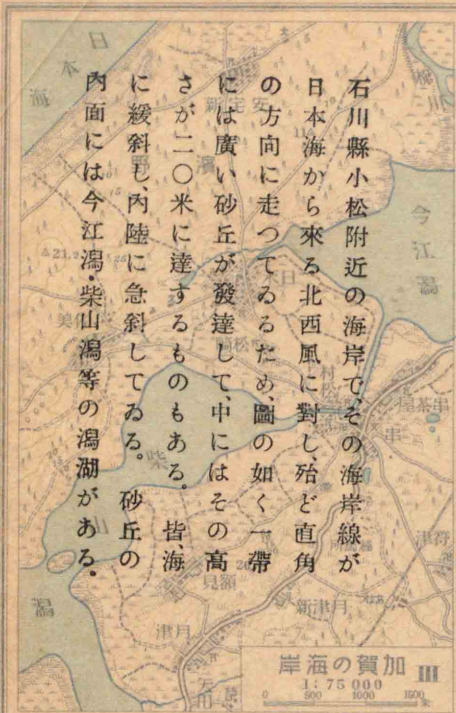 石川縣小松附近の海岸で、その海岸線が
日本海から來る北西風に對し、殆ど直角
の方向に走つてゐるため、圖の如く一帶
には廣い砂丘が發達して、中にはその高
さが二〇米に達するものもある。皆海
に緩斜し、內陸に急斜してゐる。砂丘の
內面には今江潟・柴山潟等の潟湖がある。
日本海
安宅新
濱
野
今江潟
日
柴山潟
串茶屋
串
符津
額見
月津新
月津
矢田
III 加賀の海岸
1:75 000
0 500 1000 1500米